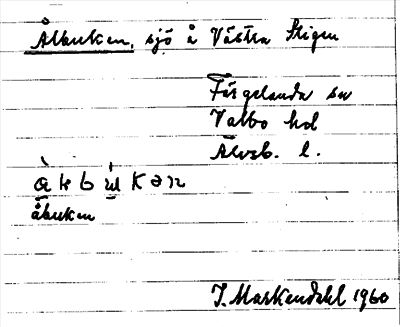 Ålbuken, sjö å Västra Stigen
Färgelanda sn
Valbo hd
Älvsb. l.
åbuken
J. Markendahl 1960